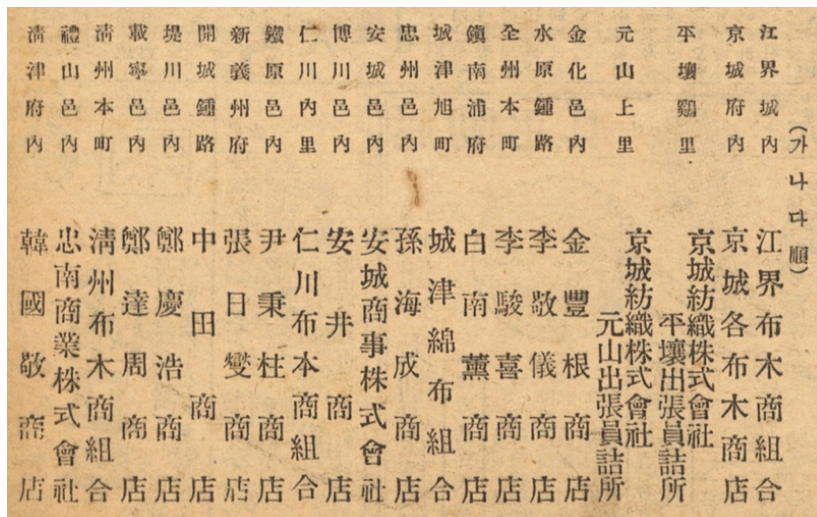 (가나다順)
江界城內 江界布木商組合
京城府內 京城各布木商店
平壤鷄里 京城紡織株式會社
平壤出張員詰所
元山上里 京城紡織株式會社
元山出張員詰所
金化邑內 金豐根商店
水原鍾路 李敬儀商店
全州本町 李駿喜商店
鎭南浦府內 白南薰商店
城津旭町 城津綿布組合
忠州邑內 孫海成商店
安城邑內 安城商事株式會社
博川邑內 安井商店
仁川內里 仁川布木商組合
鐵原邑內 尹秉柱商店
新義州府 張日燮商店
開城鍾路 中田商店
堤川邑內 鄭慶浩商店
載寧邑內 鄭達周商店
淸州本町 淸州布木商組合
禮山邑內 忠南商業株式會社
淸津府內 韓國敬商店